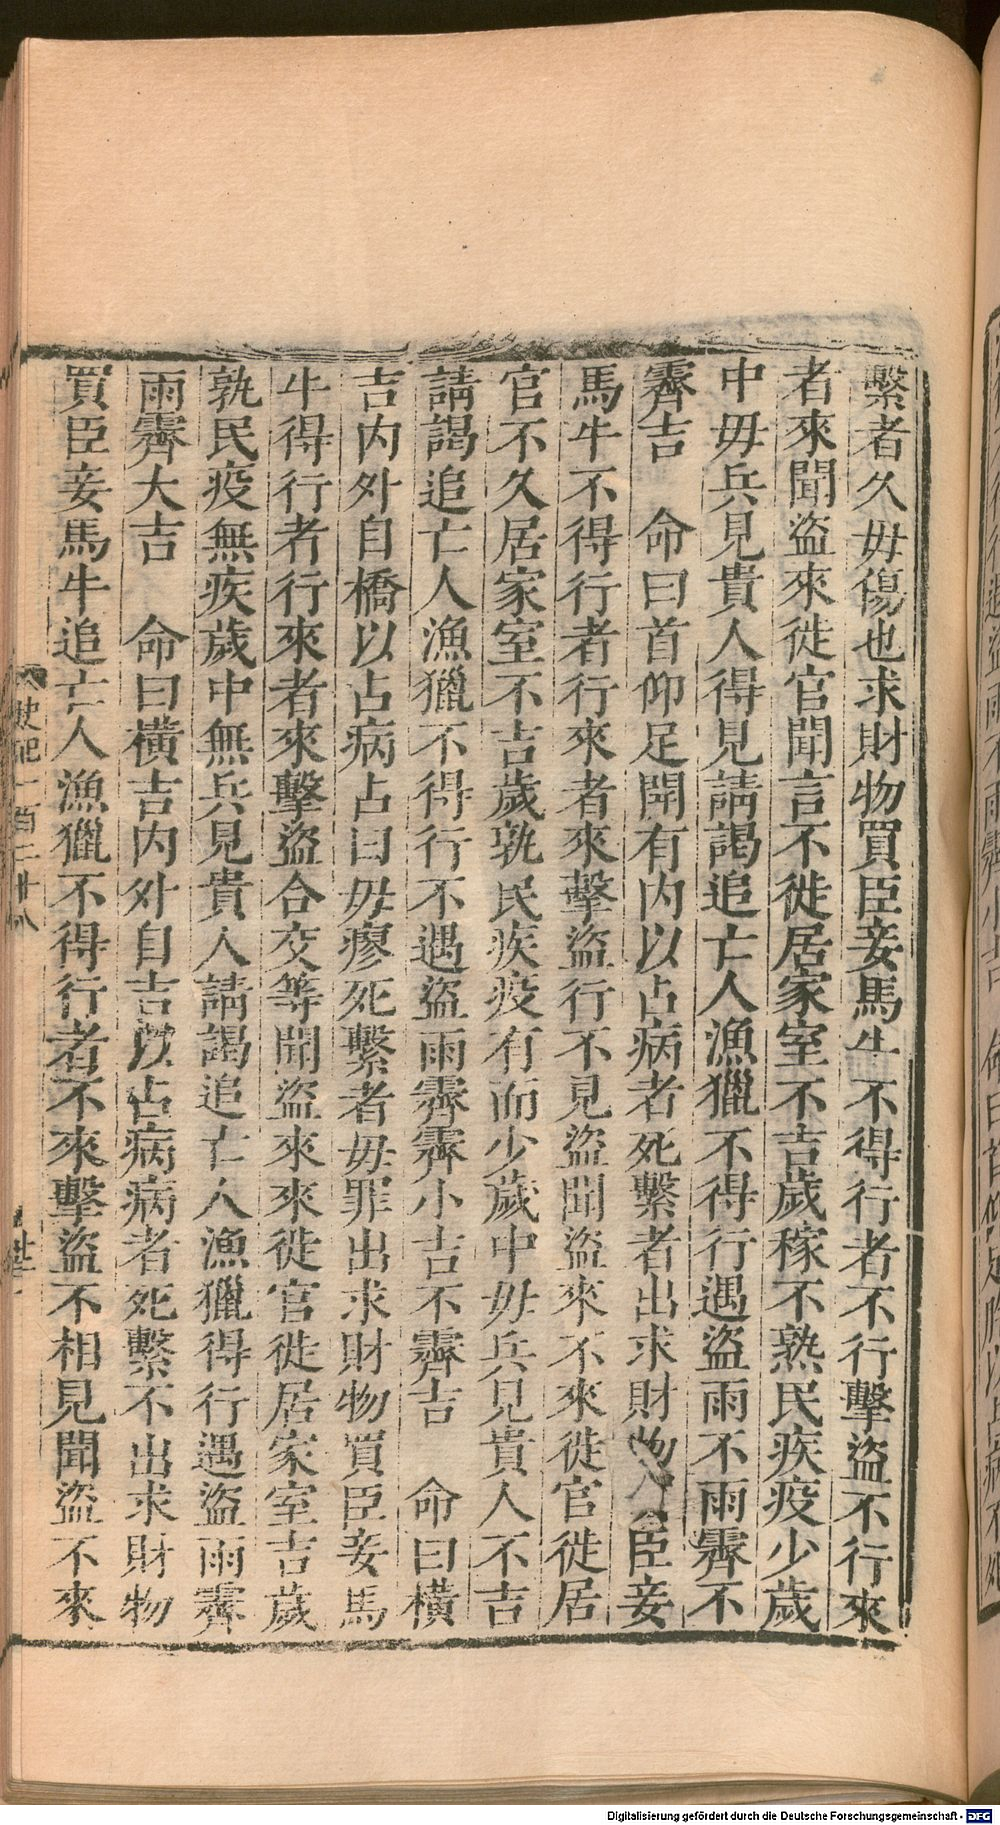 繫者久毋傷也求財物買臣妾馬牛不得行者不行擊盜不行來
者來聞盜來徙官聞言不徙居家室不吉歲稼不熟民疾疫少歲
中毋兵見貴人得見請謁追亡人漁獵不得行遇盜雨不雨霽不
霽吉　命曰首仰足開有内以占病者死繫者出求財物買臣妾
馬牛不得行者行來者來擊盜行不見盜聞盜來不來徙官徙居
官不久居家室不吉歲孰民疾疫有而少歲中毋兵見貴人不吉
請謁追亡人漁獵不得行不遇盜雨霽霽小吉不霽吉　命曰橫
吉内外自橋以占病占曰毋瘳死繫者毋罪出求財物買臣妾馬
牛得行者行來者來擊盜合交等聞盜來來徙官徙居家室吉歲
孰民疫無疾歲中無兵見貴人請謁追亡人漁獵得行遇盜雨霽
雨霽大吉　命曰橫吉内外自吉以占病病者死繫不出求財物
買臣妾馬牛追亡人漁獵不得行者不來擊盜不相見聞盜不來
史記一百二十八
Digitalisierung gefördert durch die Deutsche Forschungsgemeinschaft - DFG